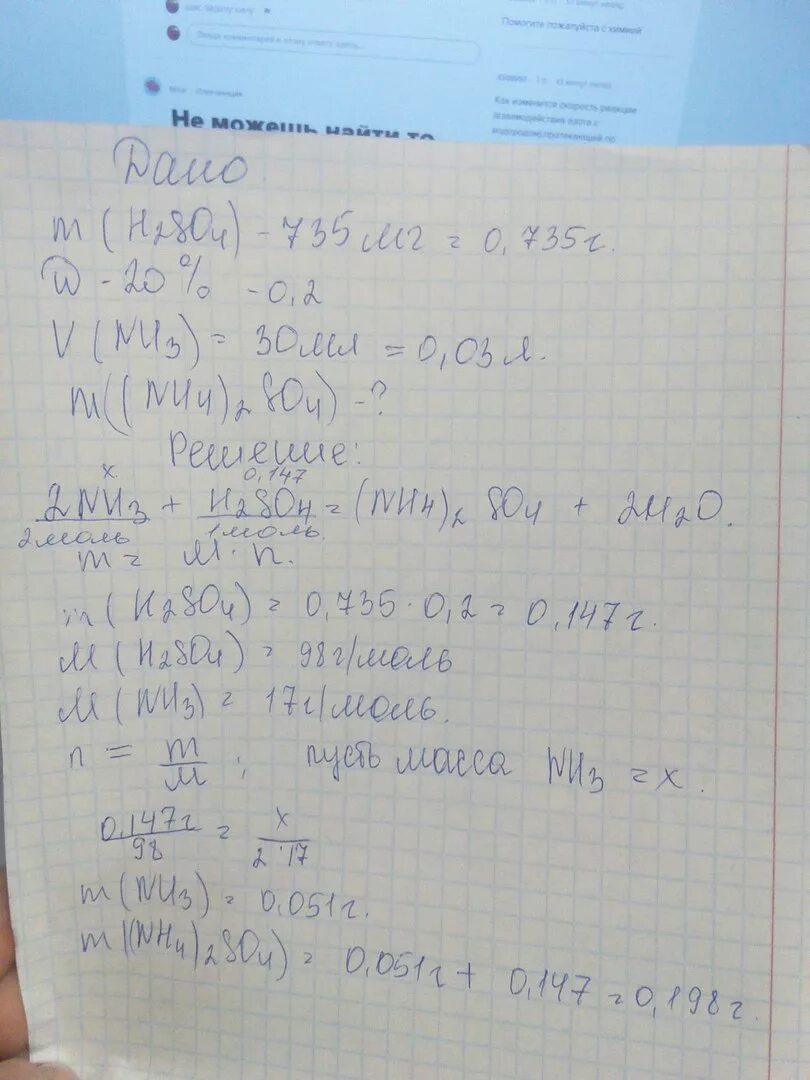 Помогите пожалуйста с химией
Как изменится скорость реакции
взаимодействия азота с
водородом, протекающей по
Не можешь найти то
Дано
m (H2SO4) - 735 мг = 0,735 г.
W - 20 % - 0,2
V (NH3) = 30 мл = 0,03 л.
m((NH4)2 SO4) - ?
Решение:
x 0,147
2NH3 + H2SO4 = (NH4)2 SO4 + 2H2O.
2 моль 1 моль.
m = M · n.
m (H2SO4) = 0,735 · 0,2 = 0,147 г.
M (H2SO4) = 98 г/моль
M (NH3) = 17 г/моль.
n = m/M ; пусть масса NH3 = x.
0,147г/98 = x/2·17
m (NH3) = 0,051 г.
m ((NH4)2SO4) = 0,051 г + 0,147 = 0,198 г.